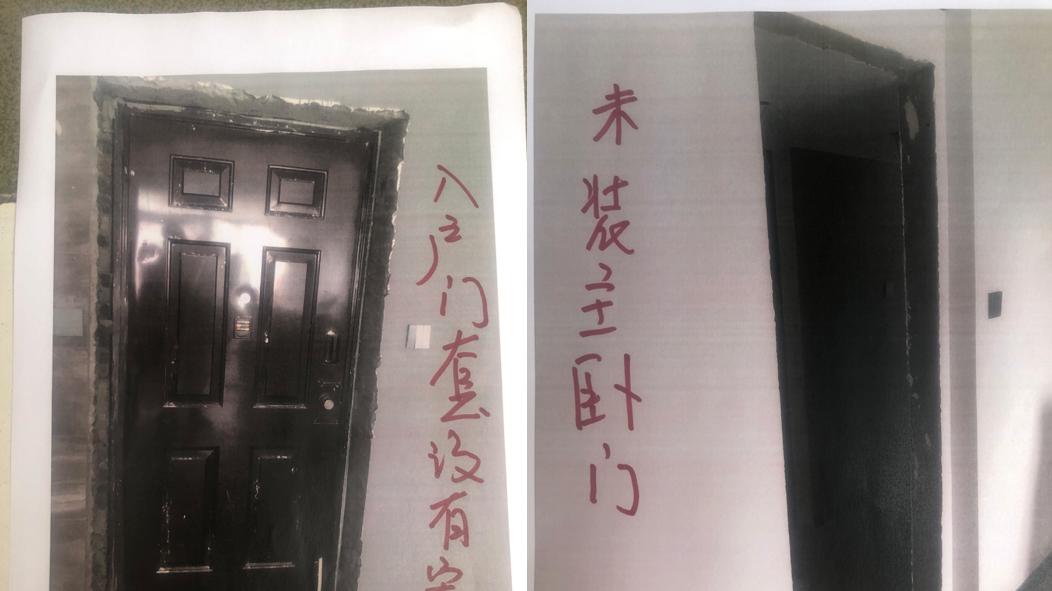 入户门套没有
未装主卧门